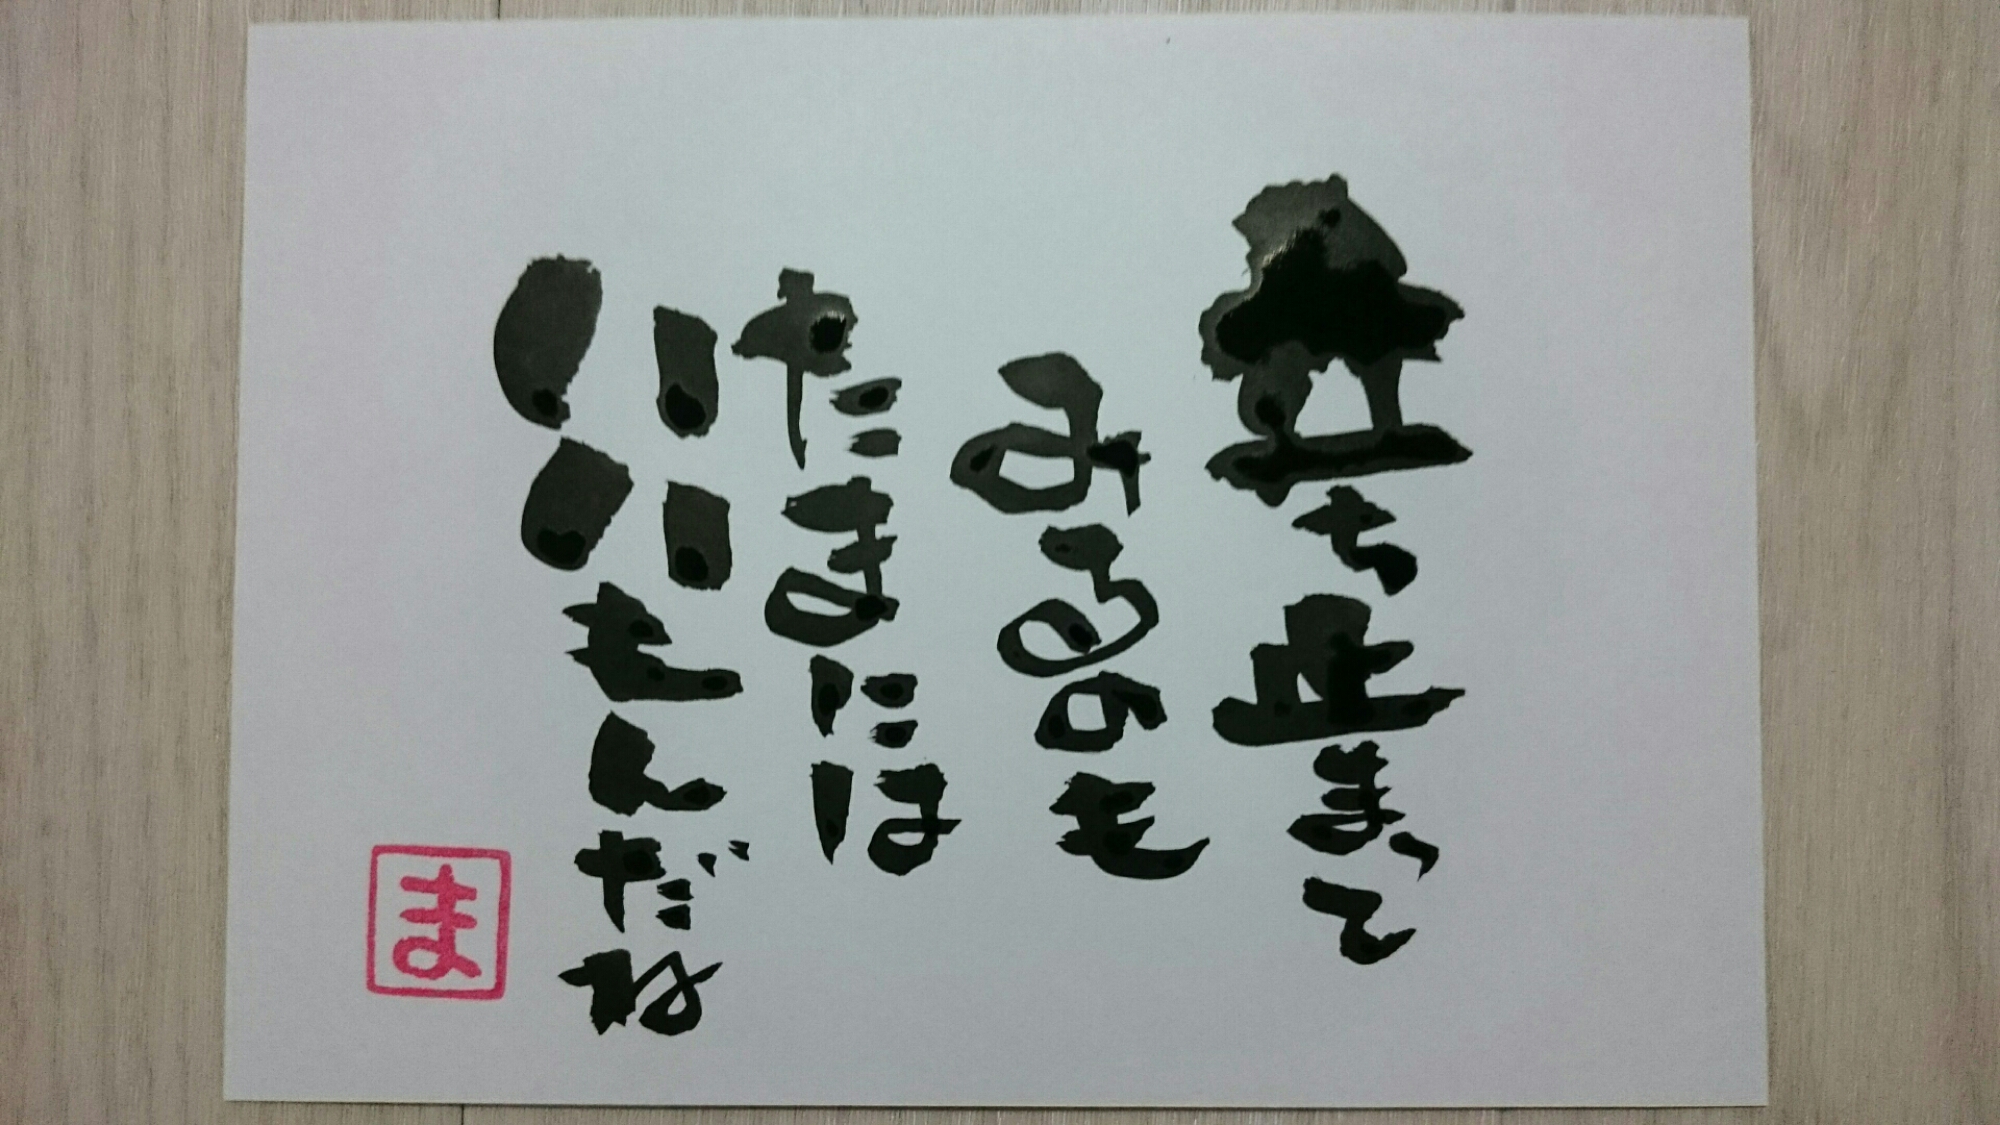 立ち止まって
みるのも
たまには
いいもんだね
ま